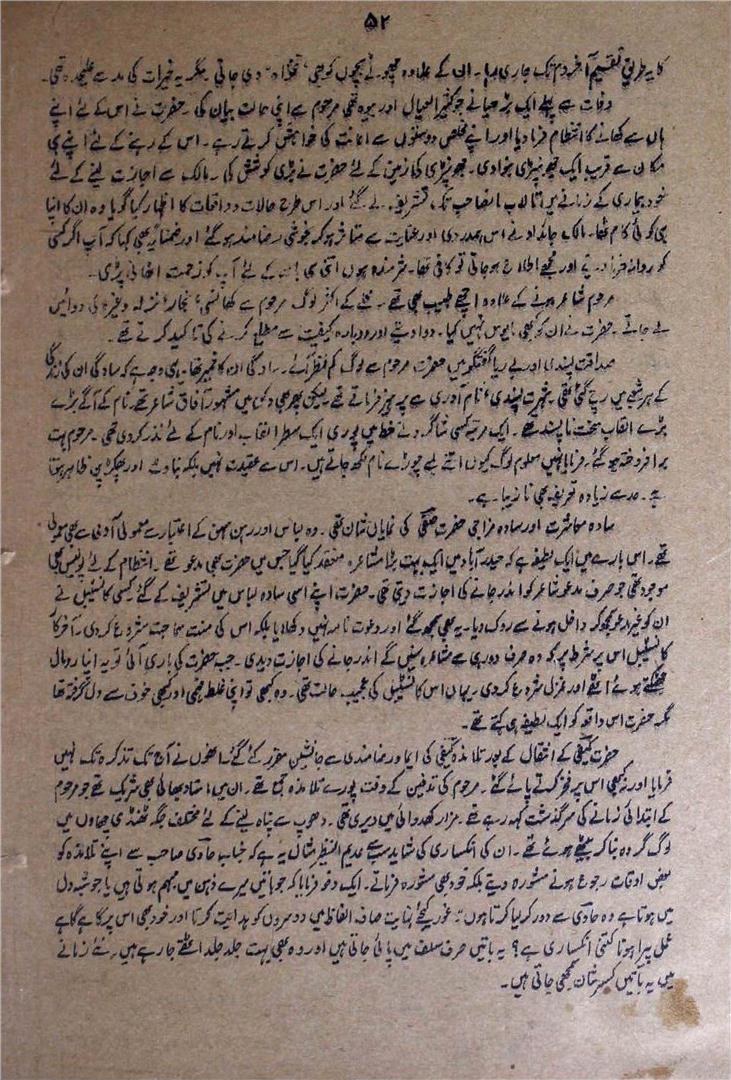 ۵۲
کا یہ طریقِ تقسیم آخر دم تک جاری رہا۔ ان کے علاوہ چھوٹے بچوں کو بھی "تنخواہ" دی جاتی۔ مگر یہ خیرات کی مد سے علیحدہ تھی۔
وفات سے پہلے ایک بڑھیا نے جو کثیر العیال اور بیوہ تھی مرحوم سے اپنی حالت بیان کی۔ حضرت نے اس کے لئے اپنے
ہاں سے کھانے کا انتظام فرما دیا اور اپنے مخلص دوستوں سے اعانت کی خواہش کرتے رہے۔ اس کے رہنے کے لئے اپنے ہی
مکان سے قریب ایک جھونپڑی بنوا دی۔ جھونپڑی کی زمین کے لئے حضرت نے بڑی کوشش کی۔ مالک سے اجازت لینے کے لئے
خود بیماری کے زمانے میں تالاب تک تشریف لے گئے اور اس طرح حالات و واقعات کا اظہار کیا گویا وہ ان کا اپنا
ہی کوئی کام تھا۔ مالک جائداد نے اس ہمدردی اور عنایت سے متاثر ہو کر بخوشی رضامند ہو گئے اور کہا کہ آپ اگر کسی
کو روانہ فرما دیتے اور مجھے اطلاع ہو جاتی تو کافی تھا۔ شرمندہ ہوں اتنی سی بات کے لئے آپ کو زحمت اٹھانی پڑی۔
مرحوم شاعر ہونے کے علاوہ اچھے طبیب بھی تھے۔ محلے کے اکثر لوگ مرحوم سے کھانسی، بخار، نزلہ وغیرہ کی دوائیں
لے جاتے۔ حضرت نے ان کو کبھی مایوس نہیں کیا۔ دوا دیتے اور دوبارہ کیفیت سے مطلع کرنے کی تاکید کرتے تھے۔
صداقت پسندی اور بے ریا گفتگو میں حضرت مرحوم سے لوگ کم نظر آئے۔ سادگی ان کا خمیر تھا۔ یہی وجہ ہے کہ سادگی ان کی زندگی
کے ہر شعبے میں رچ گئی تھی۔ شہرت پسندی، نام آوری سے پرہیز فرماتے تھے۔ لیکن پھر بھی دکن میں مشہور آفاق شاعر تھے۔ نام کے آگے بڑے
بڑے القاب سخت ناپسند تھے۔ ایک مرتبہ کسی شاگرد نے خط میں پوری ایک سطر القاب اور نام کے لئے نذر کر دی تھی۔ مرحوم بہت
برافروختہ ہو گئے۔ فرمایا نہیں معلوم لوگ کیوں اتنے لمبے چوڑے نام لکھے جاتے ہیں۔ اس سے عقیدت نہیں بلکہ بناوٹ اور چھکڑپن ظاہر ہوتا
ہے۔ حد سے زیادہ تعریف بھی نازیبا ہے۔
سادہ معاشرت اور سادہ مزاجی حضرت صفیؔ کی نمایاں شان تھی۔ وہ لباس اور رہن سہن کے اعتبار سے معمولی آدمی سے بھی معمولی
تھے۔ اس بارے میں ایک لطیفہ ہے کہ حیدرآباد میں ایک بہت بڑا مشاعرہ منعقد کیا گیا جس میں حضرت بھی مدعو تھے۔ انتظام کے لئے پولیس بھی
موجود تھی جو صرف مدعو شاعر کو اندر جانے کی اجازت دیتی تھی۔ حضرت اپنے اسی سادہ لباس میں تشریف لے گئے کسی کانسٹبل نے
ان کو غیر مدعو سمجھ کر داخل ہونے سے روک دیا۔ یہ بھی سمجھ گئے اور دعوت نامہ نہیں دکھلایا بلکہ اس کی منت سماجت شروع کر دی۔ آخرکار
کانسٹبل اس پر شرط پر کہ وہ صرف دور ہی سے مشاعرہ سنیں گے اندر جانے کی اجازت دیدی۔ جب حضرت کی باری آئی تو یہ اپنا رومال
جھٹکتے ہوئے اٹھے اور غزل شروع کر دی۔ یہاں اس کانسٹبل کی عجیب حالت تھی۔ وہ کبھی تو اپنی غلط فہمی اور کبھی خوف سے دل گرفتہ تھا
مگر حضرت اس واقعہ کو ایک لطیفہ ہی کہتے تھے۔
حضرت کیفیؔ کے انتقال کے بعد تلامذہ کیفی کی ایما و رضامندی سے جانشین مقرر کئے گئے۔ انھوں نے آج تک تذکرہ تک نہیں
فرمایا اور نہ کبھی اس پر فخر کرتے پائے گئے۔ مرحوم کی تدفین کے وقت پورے تلامذہ جمع تھے۔ ان میں استاد بھائی بھی شریک تھے جو مرحوم
کے ابتدائی زمانے کی سرگذشت کہہ رہے تھے۔ مزار کھدوائی میں دیری تھی۔ دھوپ سے پناہ لینے کے لئے مختلف جگہ ٹھنڈی چھاؤں میں
لوگ گروہ بنا کر بیٹھے ہوئے تھے۔ ان کی انکساری کی شاید سب سے عدیم النظیر مثال یہ ہے کہ جناب حاوی صاحب سے اپنے تلامذہ کو
بعض اوقات رجوع ہونے مشورہ دیتے بلکہ خود بھی مشورہ فرماتے۔ ایک دفعہ فرمایا کہ جو باتیں میرے ذہن میں مبہم ہوتی ہیں یا جو شبہ دل
میں ہوتا ہے وہ حاوی سے دور کر لیا کرتا ہوں"۔ غور کیجئے نہایت صاف الفاظ میں دوسروں کو ہدایت کرنا اور خود بھی اس پر گاہے گاہے
عمل پیرا ہونا کتنی انکساری ہے؟ یہ باتیں صرف سلف میں پائی جاتی ہیں اور وہ بھی بہت جلد جلد اٹھتے جا رہے ہیں۔ نئے زمانے
میں یہ باتیں کسرِ شان سمجھی جاتی ہیں۔